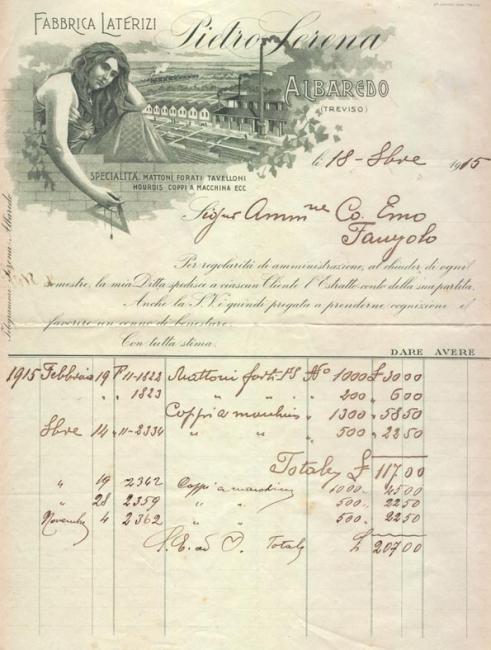 FABBRICA LATERIZI
Pietro Serena
ALBAREDO
(TREVISO)
SPECIALITÀ MATTONI FORATI TAVELLONI
HOURDIS COPPI A MACCHINA ECC
li 18 - 8bre 1915
Sigur Ammne Co. Emo
Fanzolo
Telegrammi Serena - Albaredo
Per regolarità di amministrazione, al chiuder di ogni
semestre, la mia Ditta spedisce a ciascun Cliente l'Estratto conto della sua partita.
Anche la S.V. è quindi pregata a prenderne cognizione e
favorire un cenno di benestare.
Con tutta stima.
DARE AVERE
1915 Febbraio 19 11-1822 Mattoni forti No 1000 £ 30 00
" " 1823 " " " 200 " 6 00
Coppi a macchina " 1300 " 58 50
8bre 14 " 11-2334 " " " 500 " 22 50
Totale £ 117 00
" 19 " 2342 Coppi a macchina 1000 " 45 00
" 28 " 2359 " " 500 " 22 50
Novembre 4 " 2362 " " 500 " 22 50
S. E. ed O. Totale £ 207 00